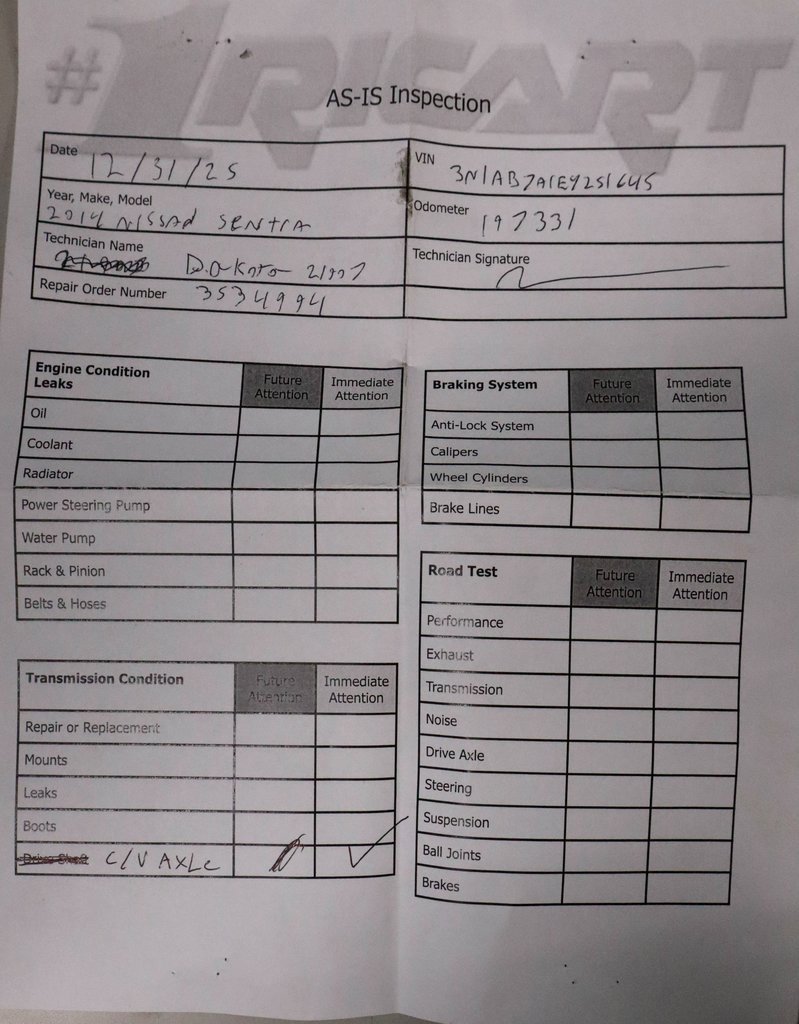 #1 RICART
AS-IS Inspection
Date 12/31/25
VIN 3N1AB7A1EY251645
Year, Make, Model
2014 NISSAN SENTRA
Odometer 197331
Technician Name
Dakota
Technician Signature
Repair Order Number 3534994
Engine Condition
Leaks
Future
Attention
Immediate
Attention
Oil
Coolant
Radiator
Power Steering Pump
Water Pump
Rack & Pinion
Belts & Hoses
Transmission Condition
Future
Attention
Immediate
Attention
Repair or Replacement
Mounts
Leaks
Boots
Drive Shaft C/V AXLE
Braking System
Future
Attention
Immediate
Attention
Anti-Lock System
Calipers
Wheel Cylinders
Brake Lines
Road Test
Future
Attention
Immediate
Attention
Performance
Exhaust
Transmission
Noise
Drive Axle
Steering
Suspension
Ball Joints
Brakes